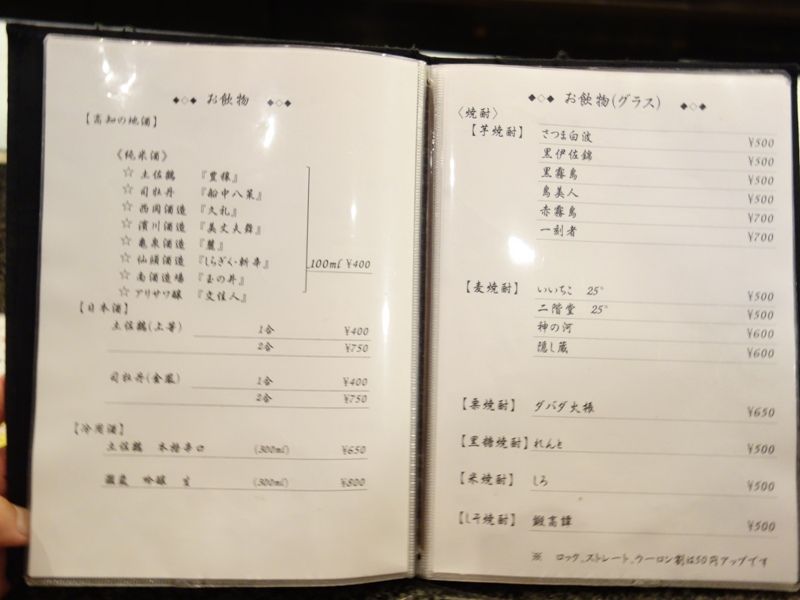 ◆◇◆ お飲物 ◆◇◆
【高知の地酒】
〈純米酒〉
☆ 土佐鶴 『豊穣』
☆ 司牡丹 『船中八策』
☆ 西岡酒造 『久礼』
☆ 濱川酒造 『美丈夫舞』
☆ 亀泉酒造 『麗』
☆ 仙頭酒造 『しらぎく・斬辛』
☆ 南酒造場 『玉の井』
☆ アリサワ醸 『文佳人』
100ml ¥400
【日本酒】
土佐鶴(上等) 1合 ¥400
2合 ¥750
司牡丹(金鳳) 1合 ¥400
2合 ¥750
【冷用酒】
土佐鶴 本格辛口 (300ml) ¥650
吟醸 生 (300ml) ¥800
◆◇◆ お飲物(グラス) ◆◇◆
〈焼酎〉
【芋焼酎】 さつま白波 ¥500
黒伊佐錦 ¥500
黒霧島 ¥500
島美人 ¥500
赤霧島 ¥700
一刻者 ¥700
【麦焼酎】 いいちこ 25° ¥500
二階堂 25° ¥500
神の河 ¥600
隠し蔵 ¥600
【栗焼酎】 ダバダ火振 ¥650
【黒糖焼酎】 れんと ¥500
【米焼酎】 しろ ¥500
【しそ焼酎】 鍛高譚 ¥500
※ ロック、ストレート、ウーロン割は50円アップです